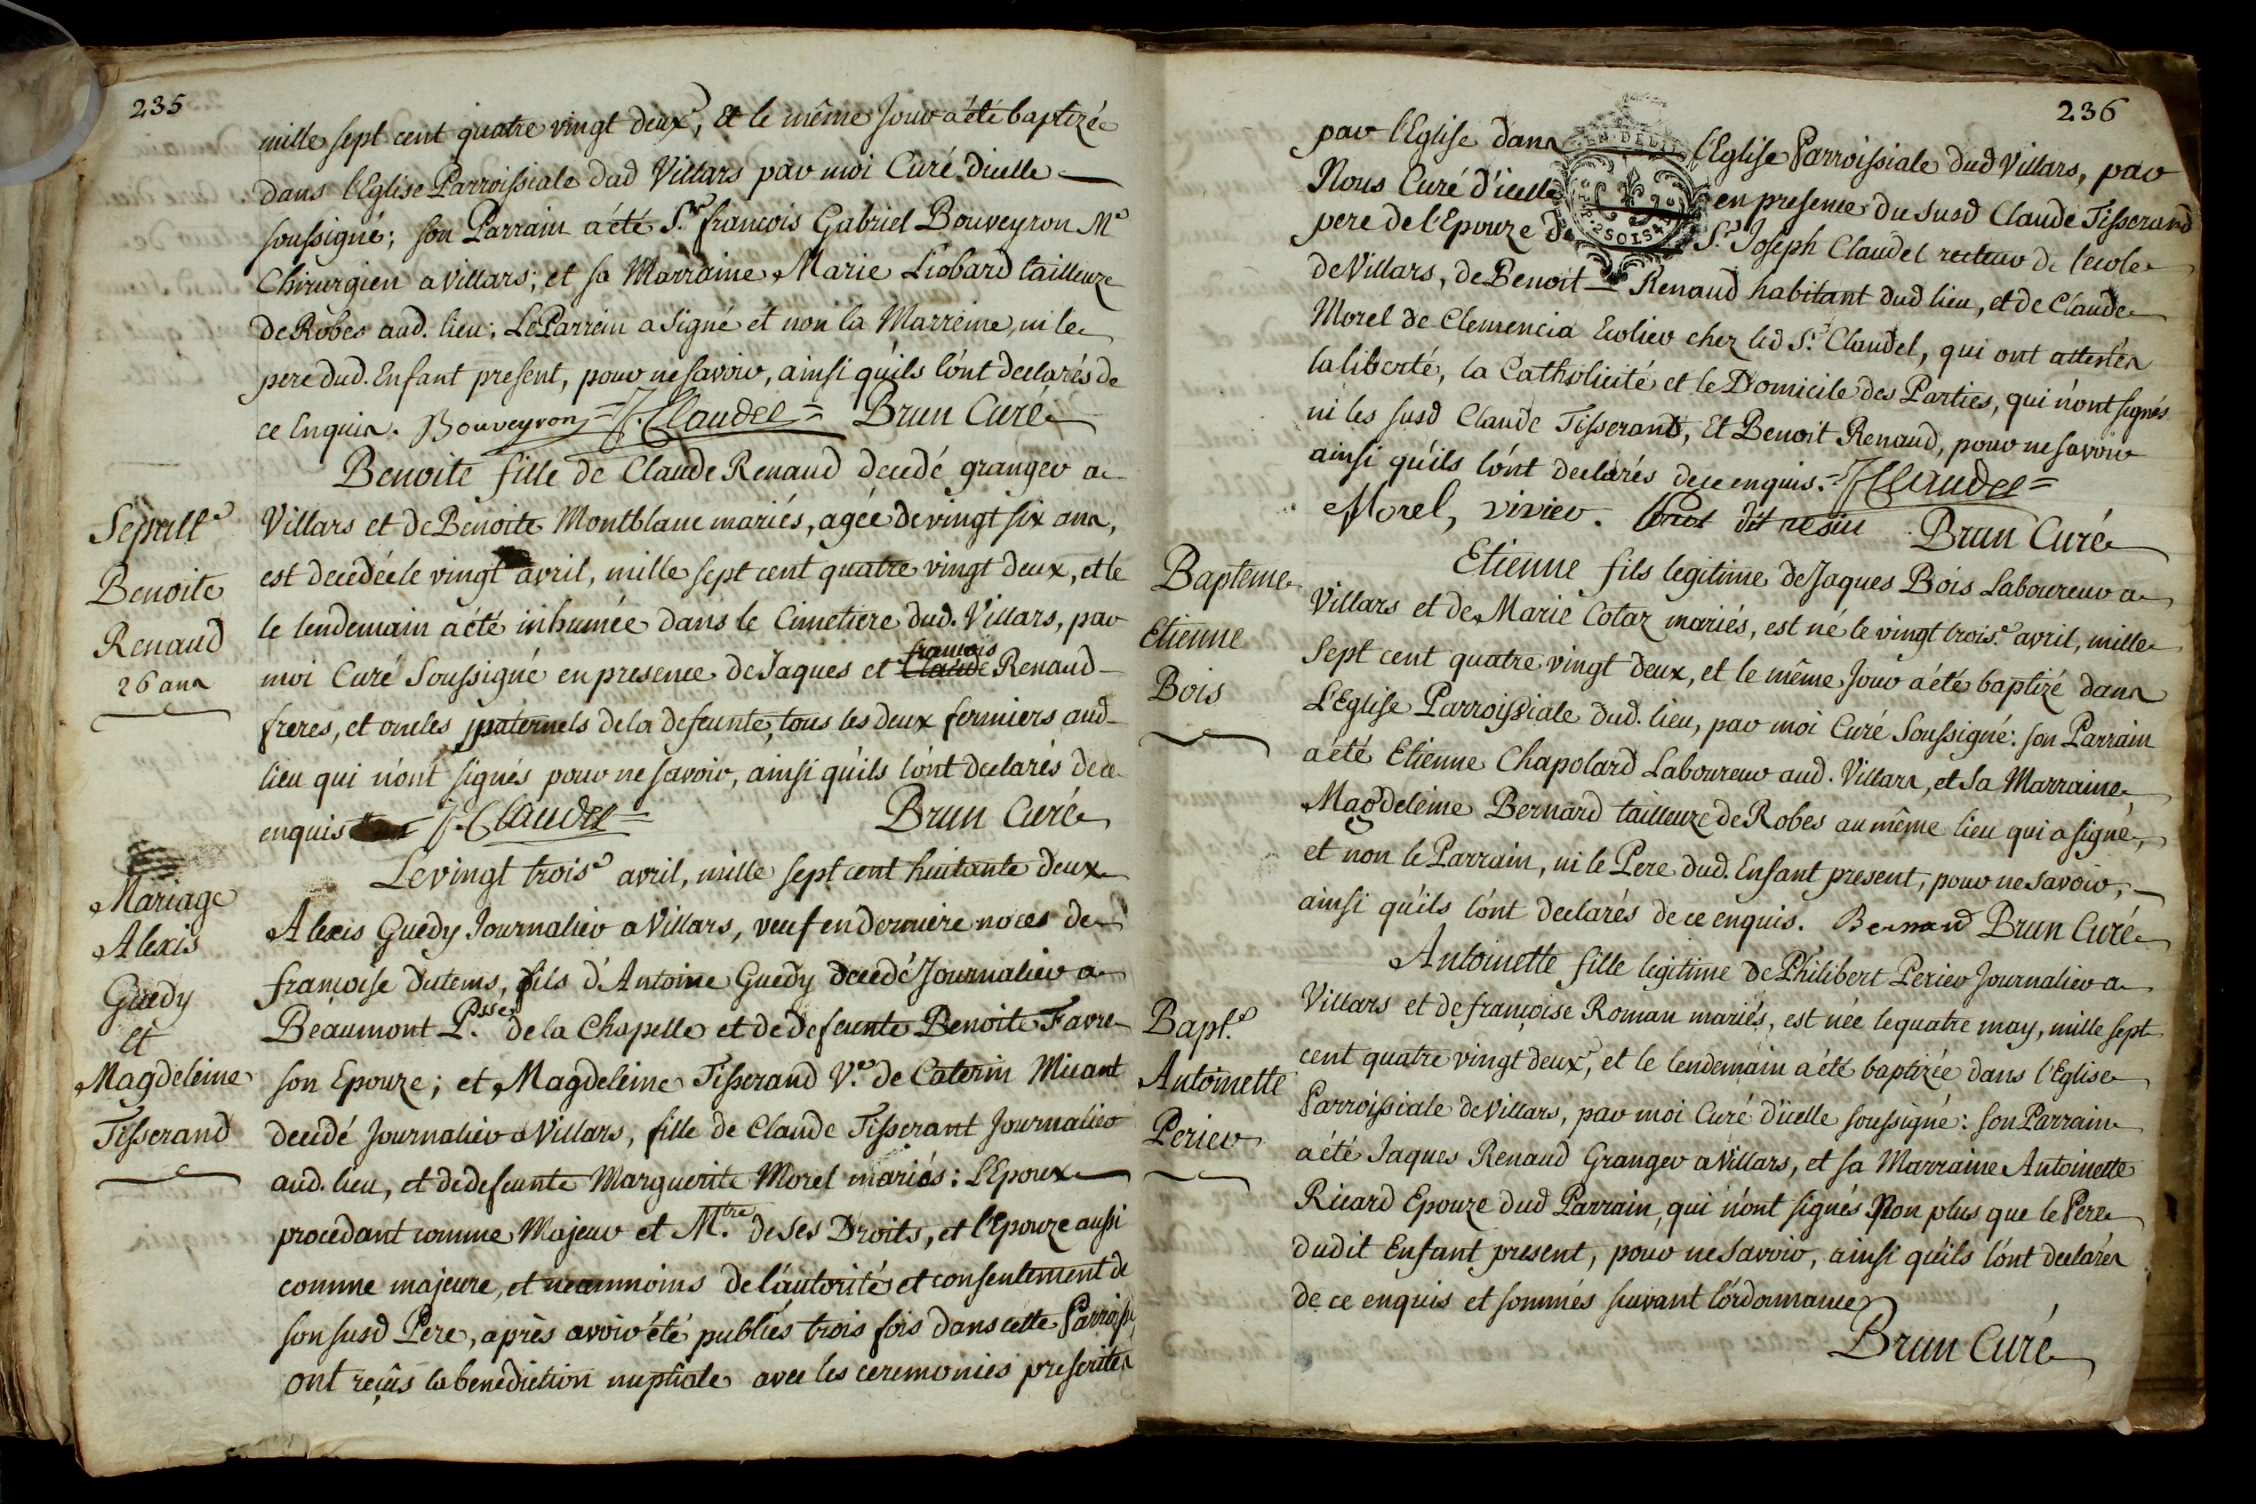 235
mille sept cent quatre vingt deux, Et le même Jour a été baptizée
dans l'Eglise Parroissiale dud Villars par moi Curé d'icelle
soussigné; son Parrain a été Sr. françois Gabriel Bouveyron Me
Chirurgien a villars; et sa Marraine Marie Liobard tailleuze
de Robes aud. lieu; Le Parrein a signé et non la Marreine, ni le
pere dud. Enfant present, pour ne savoir, ainsi qu'ils l'ónt declarés de
ce Enquis. Bouveyron = J. Claudel = Brun Curé
Sepult.e
Benoite
Renaud
26 ans
Benoite fille de Claude Renaud decedé granger a
Villars et de Benoite Montblanc mariés, agée de vingt six ans,
est decedée le vingt avril, mille sept cent quatre vingt deux, et le
le lendemain a été inhumée dans le Cimetiere dud. Villars, par
françois
moi Curé Soussigné en presence de Jaques et Claude Renaud
freres, et oncles paternels de la defeunte, tous les deux fermiers aud
lieu qui n'ónt signés pour ne savoir, ainsi qu'ils l'ónt declarés de ce
enquis J. Claudel = Brun Curé
Mariage
Alexis
Guedy
et
Magdeleine
Tisserand
Le vingt trois.e avril, mille sept cent huitante deux
Alexis Guedy Journalier a Villars, veuf en derniere noces de
françoise dutems, fils d'Antoine Guedy decedé Journalier a
Beaumont P.sse de la Chapelle et de defeunte Benoite Favre
son Epouze; et Magdeleine Tisserand V.e de Caterin Micant
decedé Journalier a Villars, fille de Claude Tisserant Journalier
aud. lieu, et de defeunte Marguerite Morel mariés: l'Epoux
procedant comme Majeur et M.tre de ses Droits, et l'Epouze aussi
comme majeure, et neammoins de l'áutorité et consentement de
son susd Pere, après avoir été publiés trois fois dans cette Parroisse
ont reçûs la benediction nuptiale avec les ceremonies prescrites
236
par l'Eglise dans l'Eglise Parroissiale dud Villars, par
Nous Curé d'icelle en presence du susd Claude Tisserand
pere de l'Epouze de Sr. Joseph Claudel recteur de l'ecole
de Villars, de Benoit Renaud habitant dud lieu, et de Claude
Morel de Clemencia Ecolier chez led Sr. Claudel, qui ont attestés
la liberté, la Catholicité et le Domicile des Parties, qui n'ónt signés
ni les susd Claude Tisserand, Et Benoit Renaud, pour ne savoir
ainsi qu'ils l'ónt declarés de ce enquis. = J. Claudel =
Morel, vivier. Brun Curé
Baptême
Etienne
Bois
Etienne fils legitime de Jaques Bois Laboureur a
Villars et de Marie Cotaz mariés, est né le vingt trois.e avril, mille
Sept cent quatre vingt deux, et le même Jour a été baptizé dans
L'Eglise Parroissiale dud. lieu, par moi Curé Soussigné: son Parrain
a été Etienne Chapolard Laboureur aud. Villars, et sa Marraine
Magdeleine Bernard tailleuze de Robes au même lieu qui a signé,
et non le Parrain, ni le Pere dud. Enfant present, pour ne savoir,
ainsi qu'ils l'ónt declarés de ce enquis. Bernard Brun Curé
Bapt.e
Antoinette
Perier
Antoinette fille legitime de Philibert Perier Journalier a
Villars et de françoise Roman mariés, est née le quatre may, mille sept
cent quatre vingt deux, et le lendemain a été baptizée dans l'Eglise
Parroissiale de Villars, par moi Curé d'icelle soussigné: son Parrain
a été Jaques Renaud Granger a Villars, et sa Marraine Antoinette
Ricard Epouze dud Parrain, qui n'ónt signés Non plus que le Pere
dudit Enfant present, pour ne savoir, ainsi qu'ils l'ónt declarés
de ce enquis et sommés suivant l'órdonnance
Brun Curé